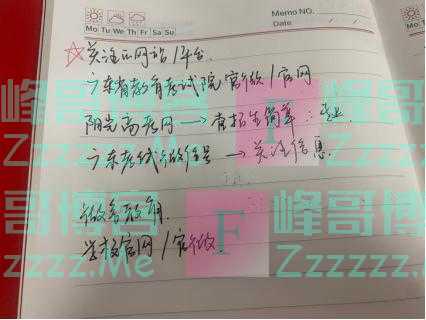 Memo NO.
Mo Tu We Th Fr Sa Su
Date / /
Mo Tu
☆关注的网站/平台.
广东省教育考试院官微/官网
阳光高考网→查招生简章:专业
广东考试微信号→关注信息.
学校官网/官微.
峰哥博客
Zzzzzz.Me
峰哥博客
Zzzzzz.Me
F
峰哥博客
Zzzzzz.Me
F
峰哥博客
Zzzzzz.Me